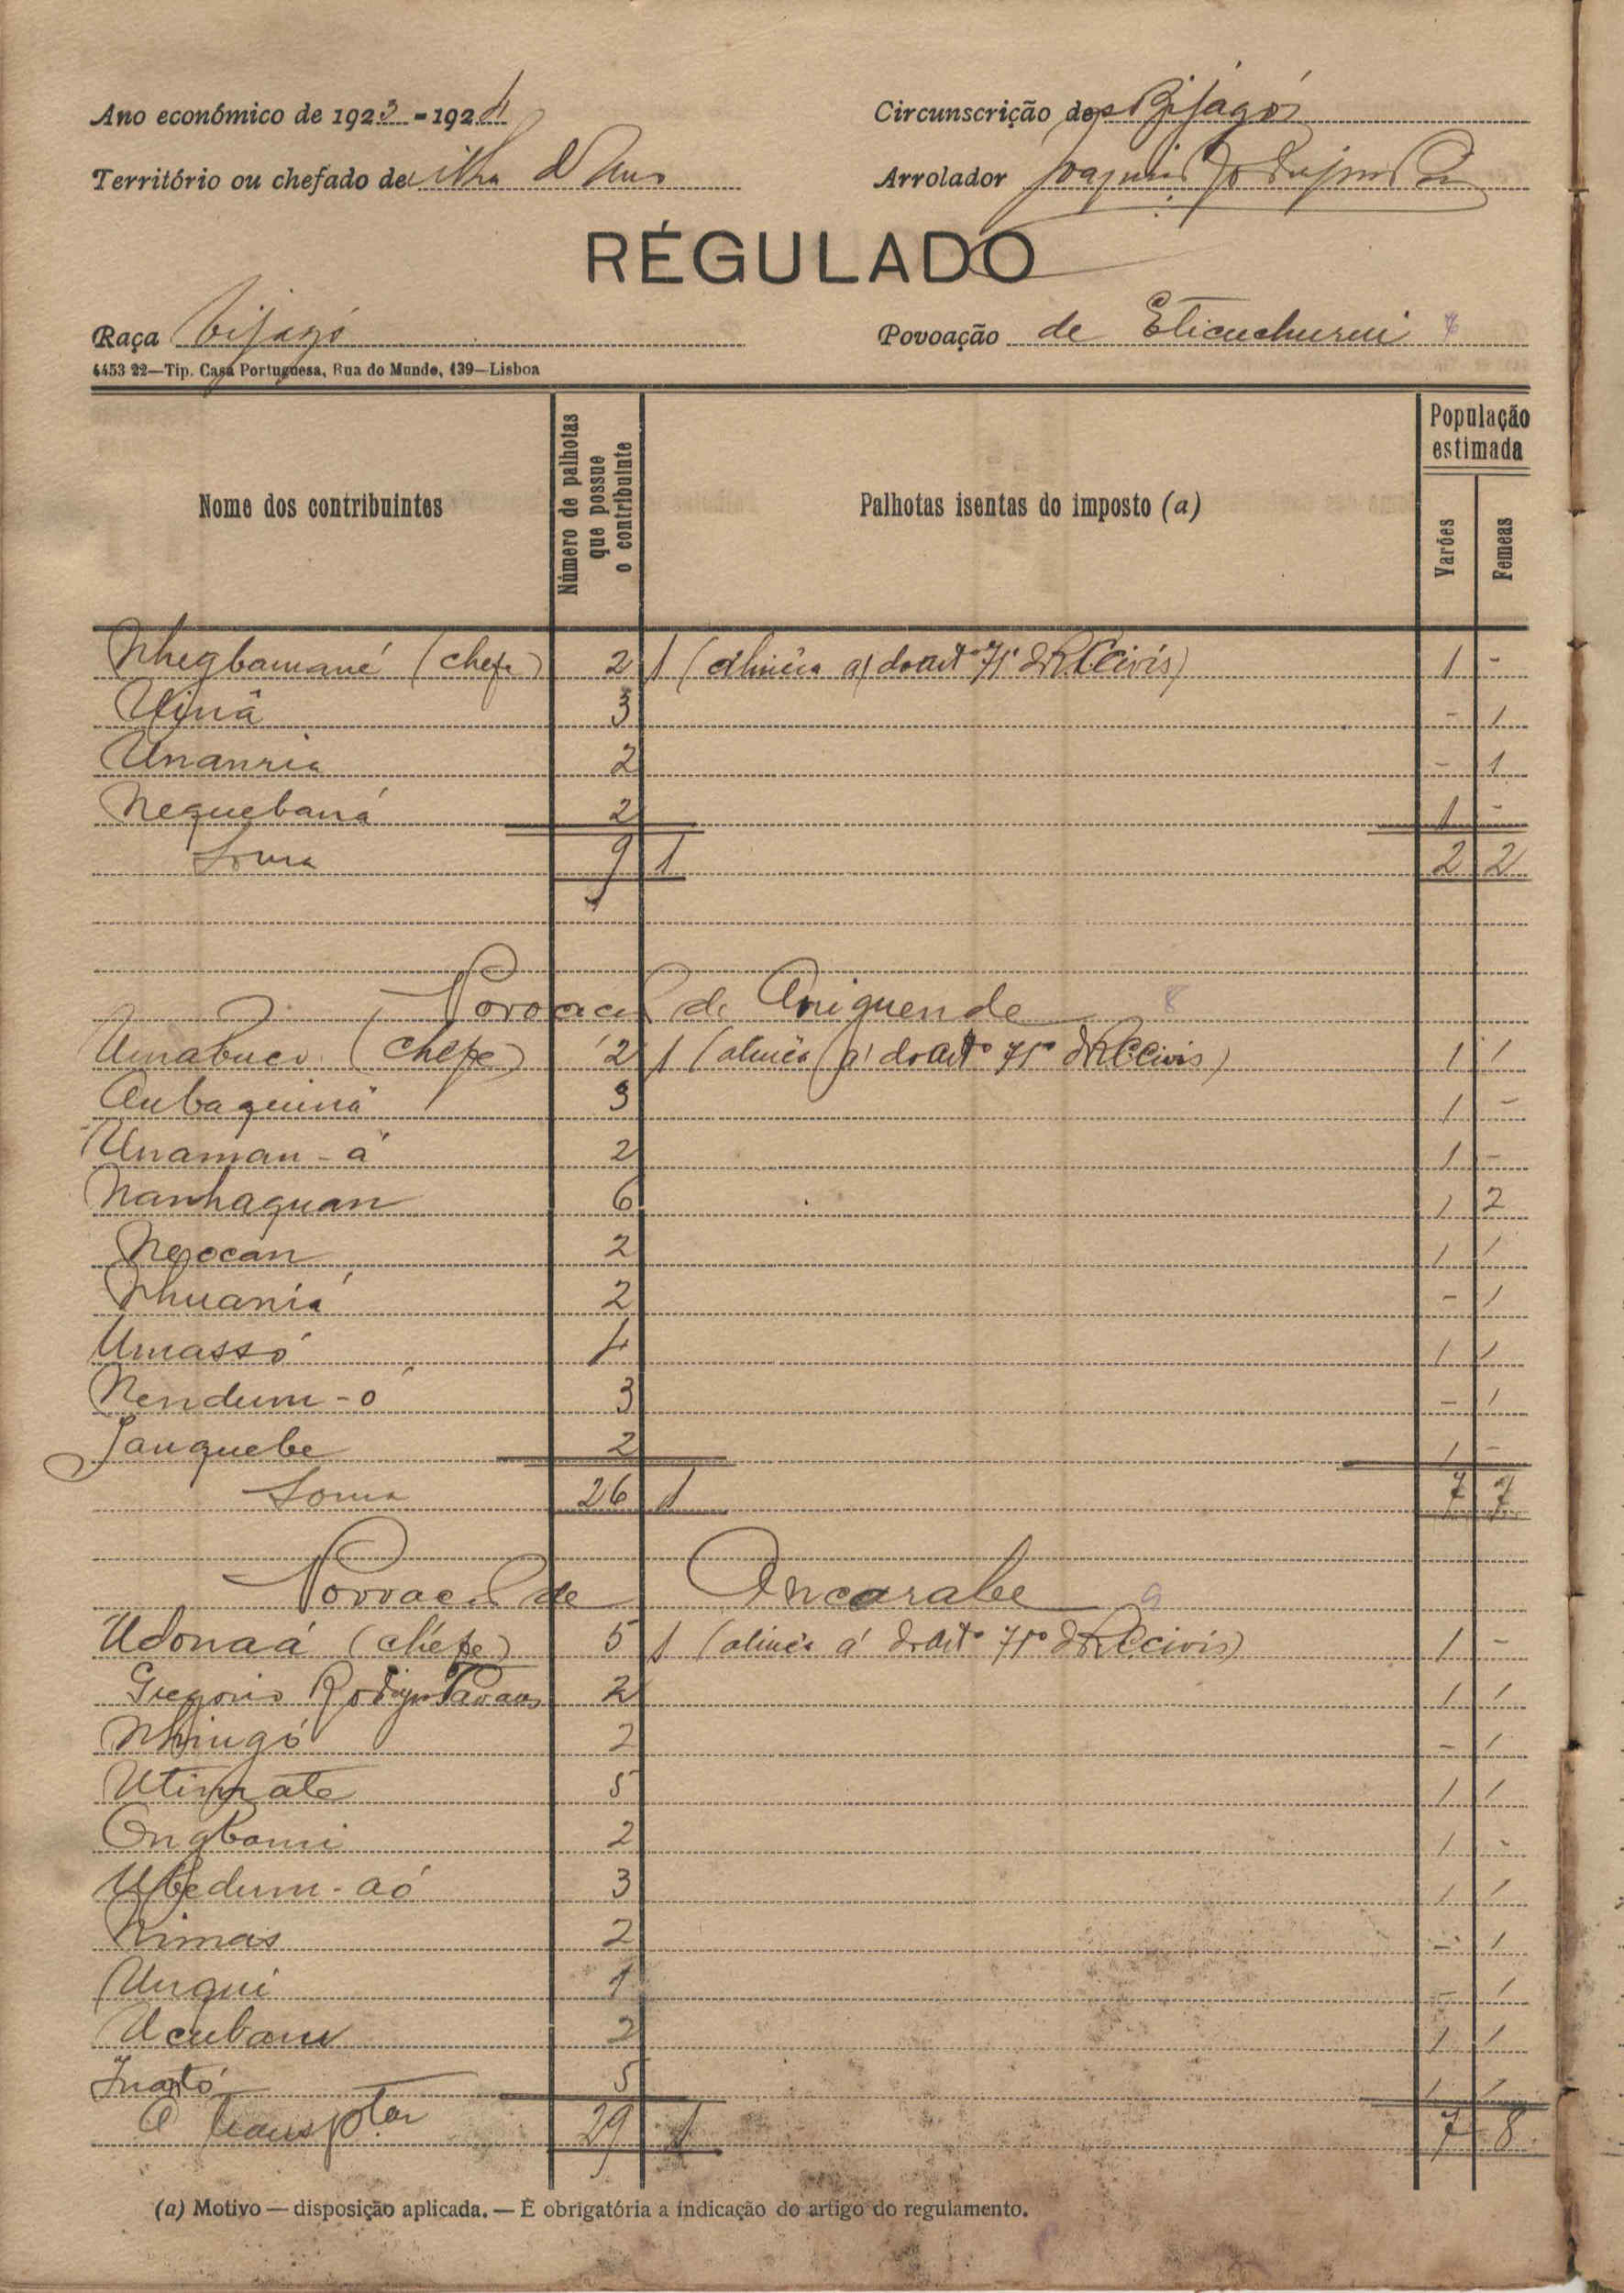 Ano económico de 1923-1924 Circunscrição dos Bijagós
Território ou chefado de ilha d Uno Arrolador Joaquim
RÉGULADO
Raça bijagó Povoação de Eticuchurui 7
4453 22—Tip. Casa Portuguesa, Rua do Mundo, 139—Lisboa
Nome dos contribuintes
Número de palhotas que possue o contribuinte
Palhotas isentas do imposto (a)
População estimada
Varões
Femeas
Nhegbamané (chefe) 2 1 (alinêa a) do artº 71º d R.C.Civis) 1 -
Uinâ 3 - 1
Unanria 2 - 1
Nequebaná 2 1 -
Soma 9 1 2 2
Povoação de Aniguende 8
Umabuco (chefe) 2 1 (alinêa a) do artº 71º d R.C.Civis) 1 1
Aubaquiná 3 1 -
Unaman-á 2 1 -
Nanhaguan 6 1 2
Negocan 2 1 1
Nhuaniá 2 - 1
Umassó 4 1 1
Nendum-ó 3 - 1
Janquebe 2 1 -
Soma 26 1 7 7
Povoação de Ancarabe 9
Udonaá (chefe) 5 1 (alinêa á do artº 71º d R.C.civis) 1 -
Gregorio Rodrigues Tavares 2 1 1
Nhingó 2 - 1
Utimate 5 1 1
Ongbomi 2 1 -
Ubedum-aó 3 1 1
Nimas 2 - 1
Unqui 1 - 1
Acubam 2 1 1
Inató 5 1 1
A transportar 29 1 7 8
(a) Motivo — disposição aplicada. — É obrigatória a indicação do artigo do regulamento.